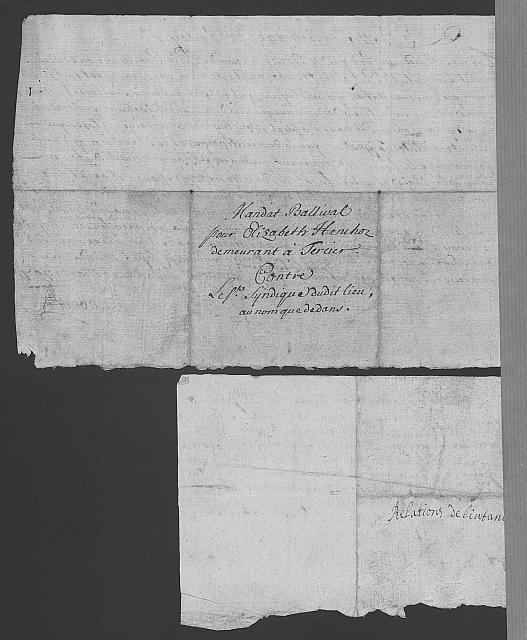 Mandat Ballival
pour Elizabeth Henchoz
demeurant à Tercier.
Contre
Le Sr. Syndique dudit lieu,
au nom que dedans.
Relations de